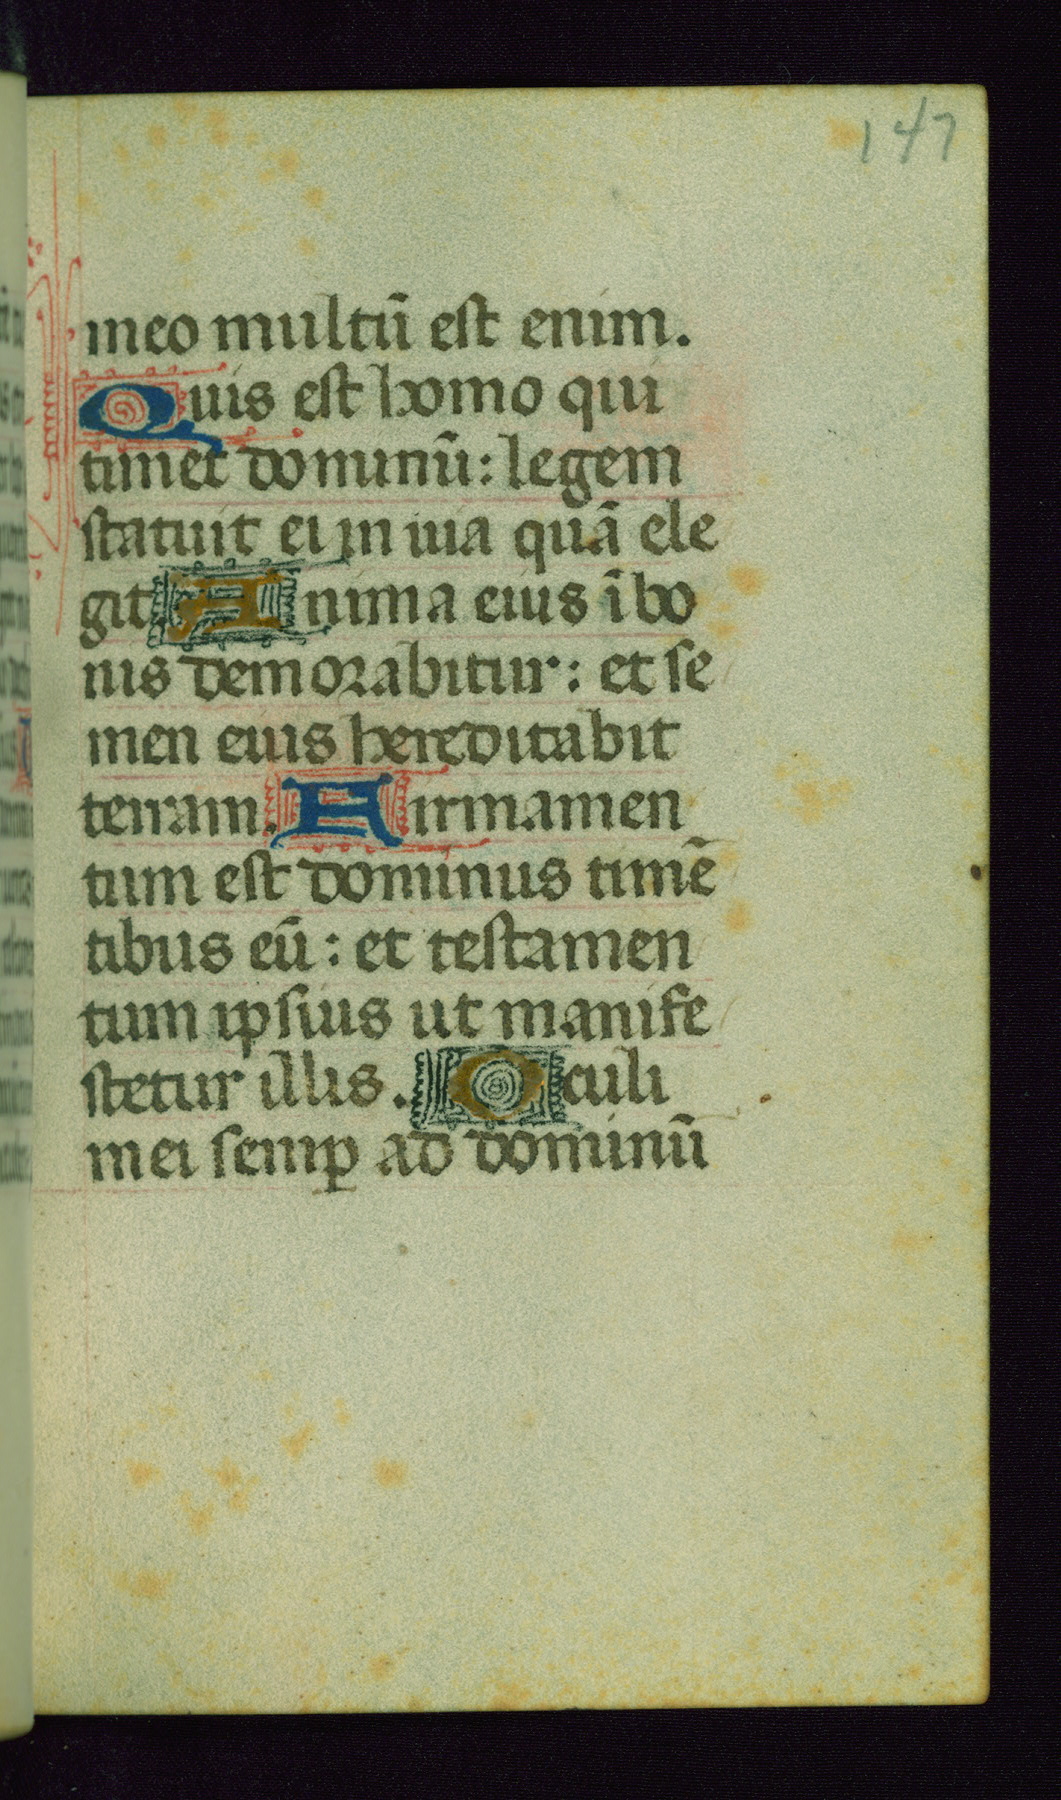 147
meo multū est enim.
Quis est homo qui
timet dominū: legem
statuit ei in uia quā ele
git Anima eius ī bo
nis demorabitur: et se
men eius hereditabit
terram. Firmamen
tum est dominus timē
tibus eū: et testamen
tum ipsius ut manife
stetur illis. Oculi
mei semꝑ ad dominū